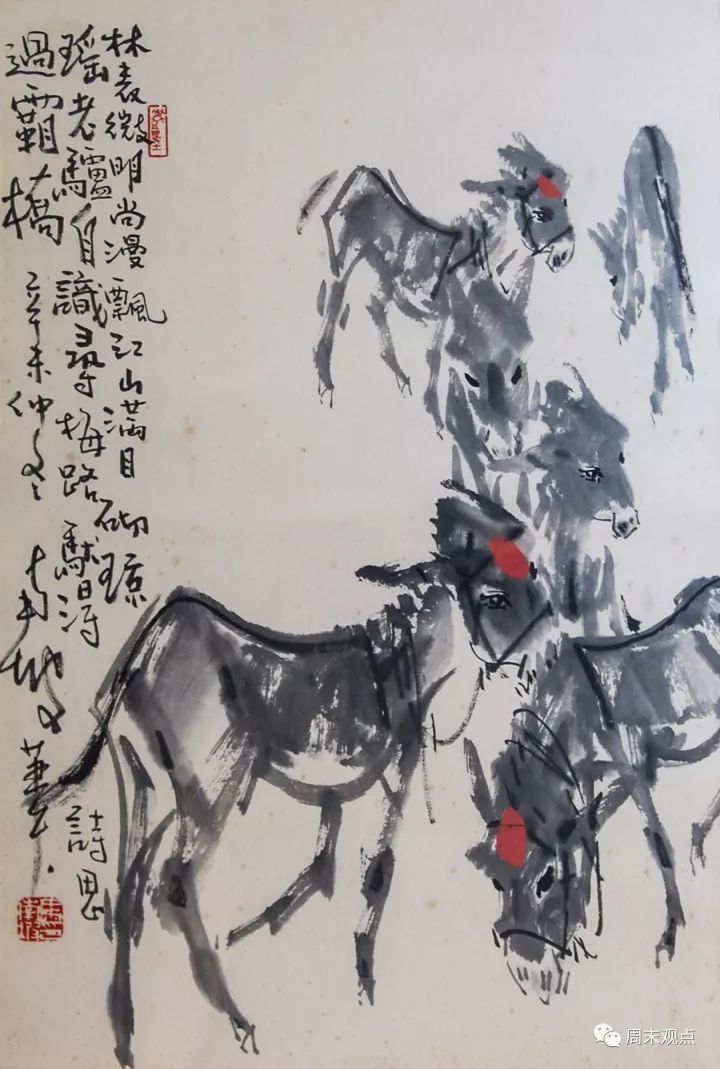 林表微明尚漫飄江山滿目砌瓊
瑶老驢自識尋梅路馱得
過霸橋 辛未仲冬 南坡
詩思
周末观点